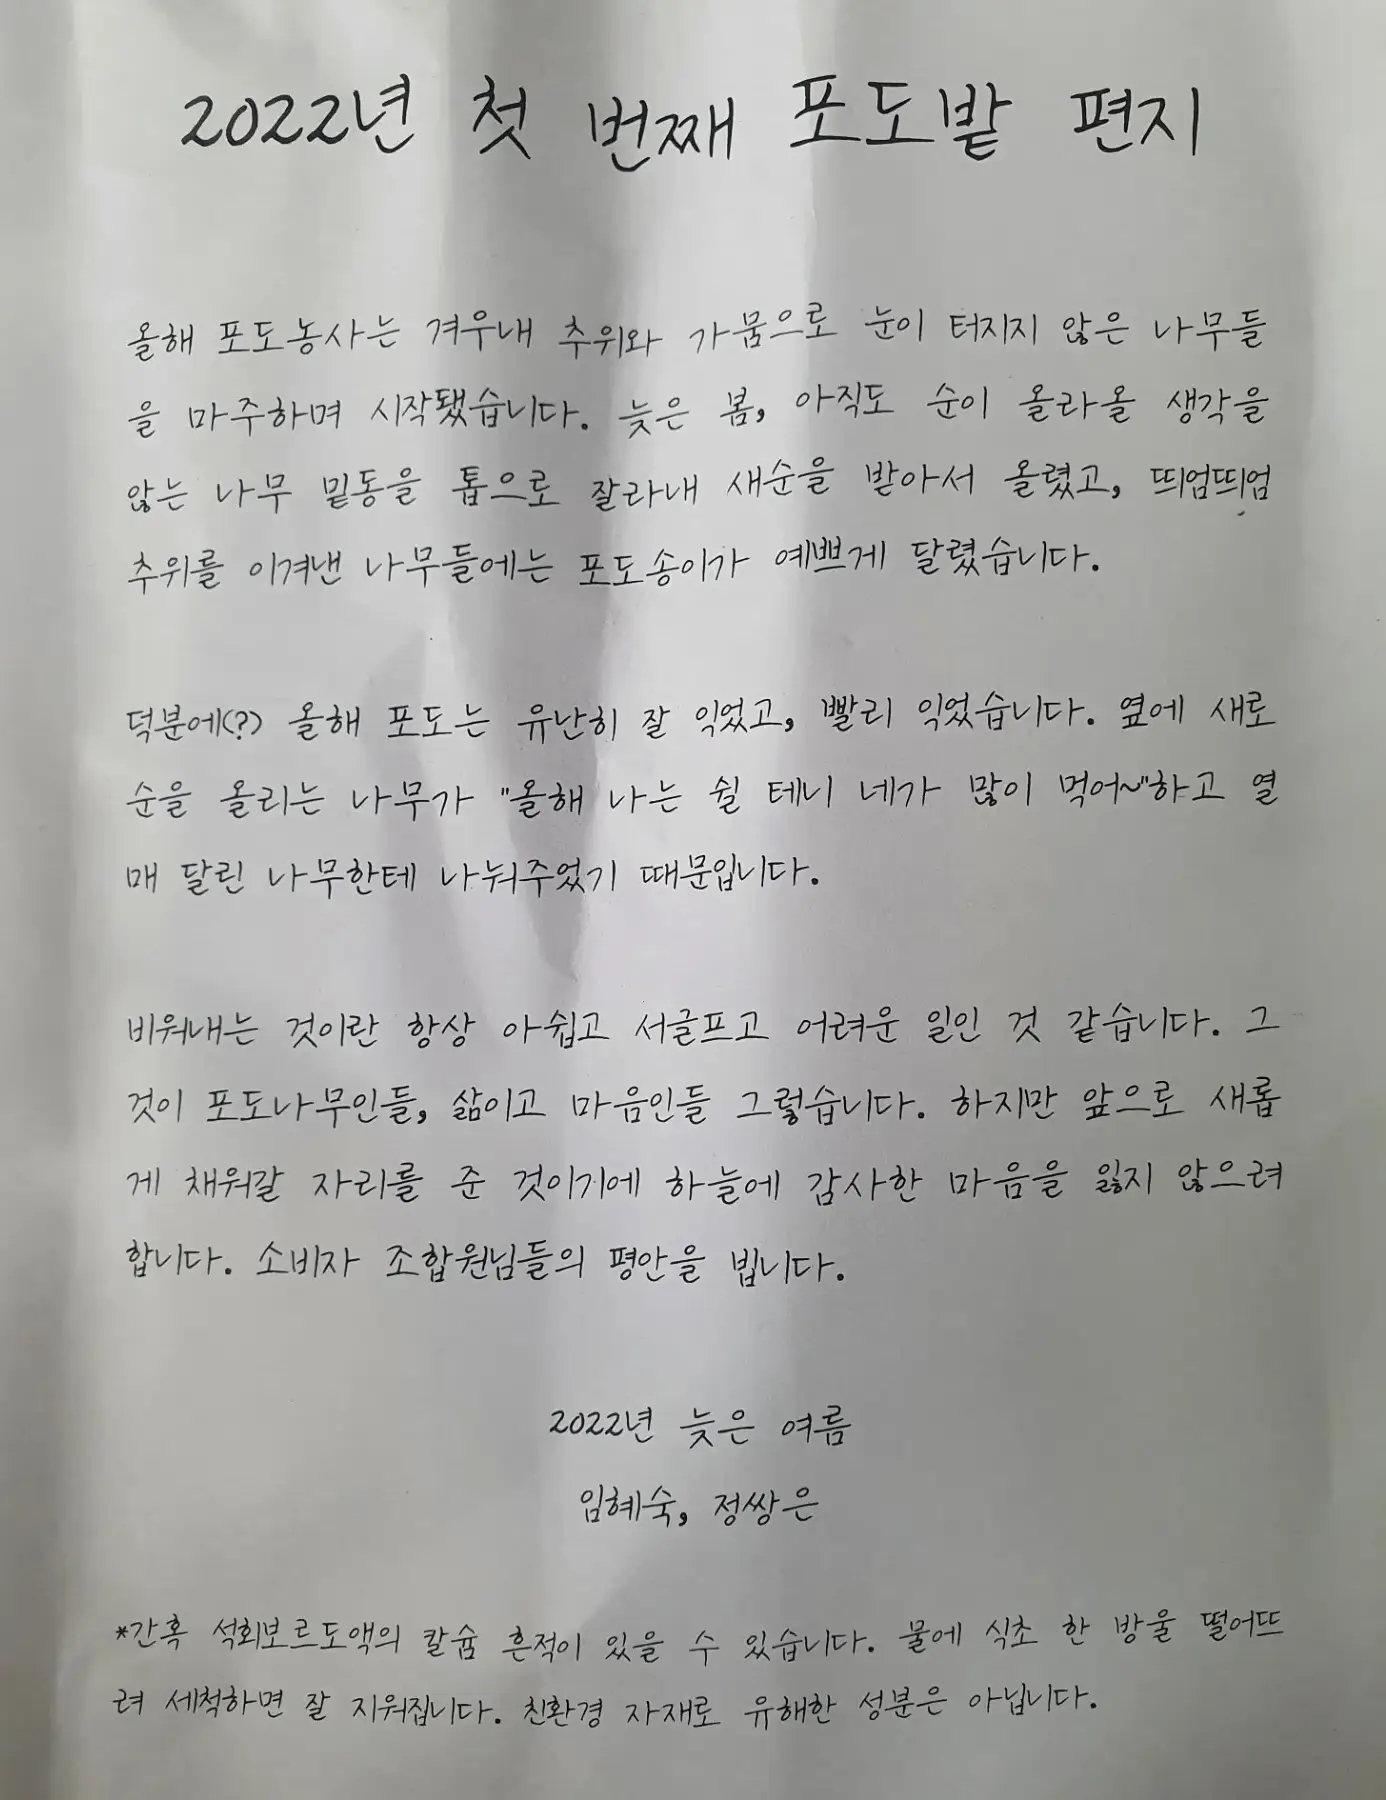 2022년 첫 번째 포도밭 편지
올해 포도농사는 겨우내 추위와 가뭄으로 눈이 터지지 않은 나무들
을 마주하며 시작됐습니다. 늦은 봄, 아직도 순이 올라올 생각을
않는 나무 밑동을 톱으로 잘라내 새순을 받아서 올렸고, 띄엄띄엄
추위를 이겨낸 나무들에는 포도송이가 예쁘게 달렸습니다.
덕분에(?) 올해 포도는 유난히 잘 익었고, 빨리 익었습니다. 옆에 새로
순을 올리는 나무가 "올해 나는 쉴 테니 네가 많이 먹어~"하고 열
매 달린 나무한테 나눠주었기 때문입니다.
비워내는 것이란 항상 아쉽고 서글프고 어려운 일인 것 같습니다. 그
것이 포도나무인들, 삶이고 마음인들 그렇습니다. 하지만 앞으로 새롭
게 채워갈 자리를 준 것이기에 하늘에 감사한 마음을 잃지 않으려
합니다. 소비자 조합원님들의 평안을 빕니다.
2022년 늦은 여름
임혜숙, 정쌍은
*간혹 석회보르도액의 칼슘 흔적이 있을 수 있습니다. 물에 식초 한 방울 떨어뜨
려 세척하면 잘 지워집니다. 친환경 자재로 유해한 성분은 아닙니다.